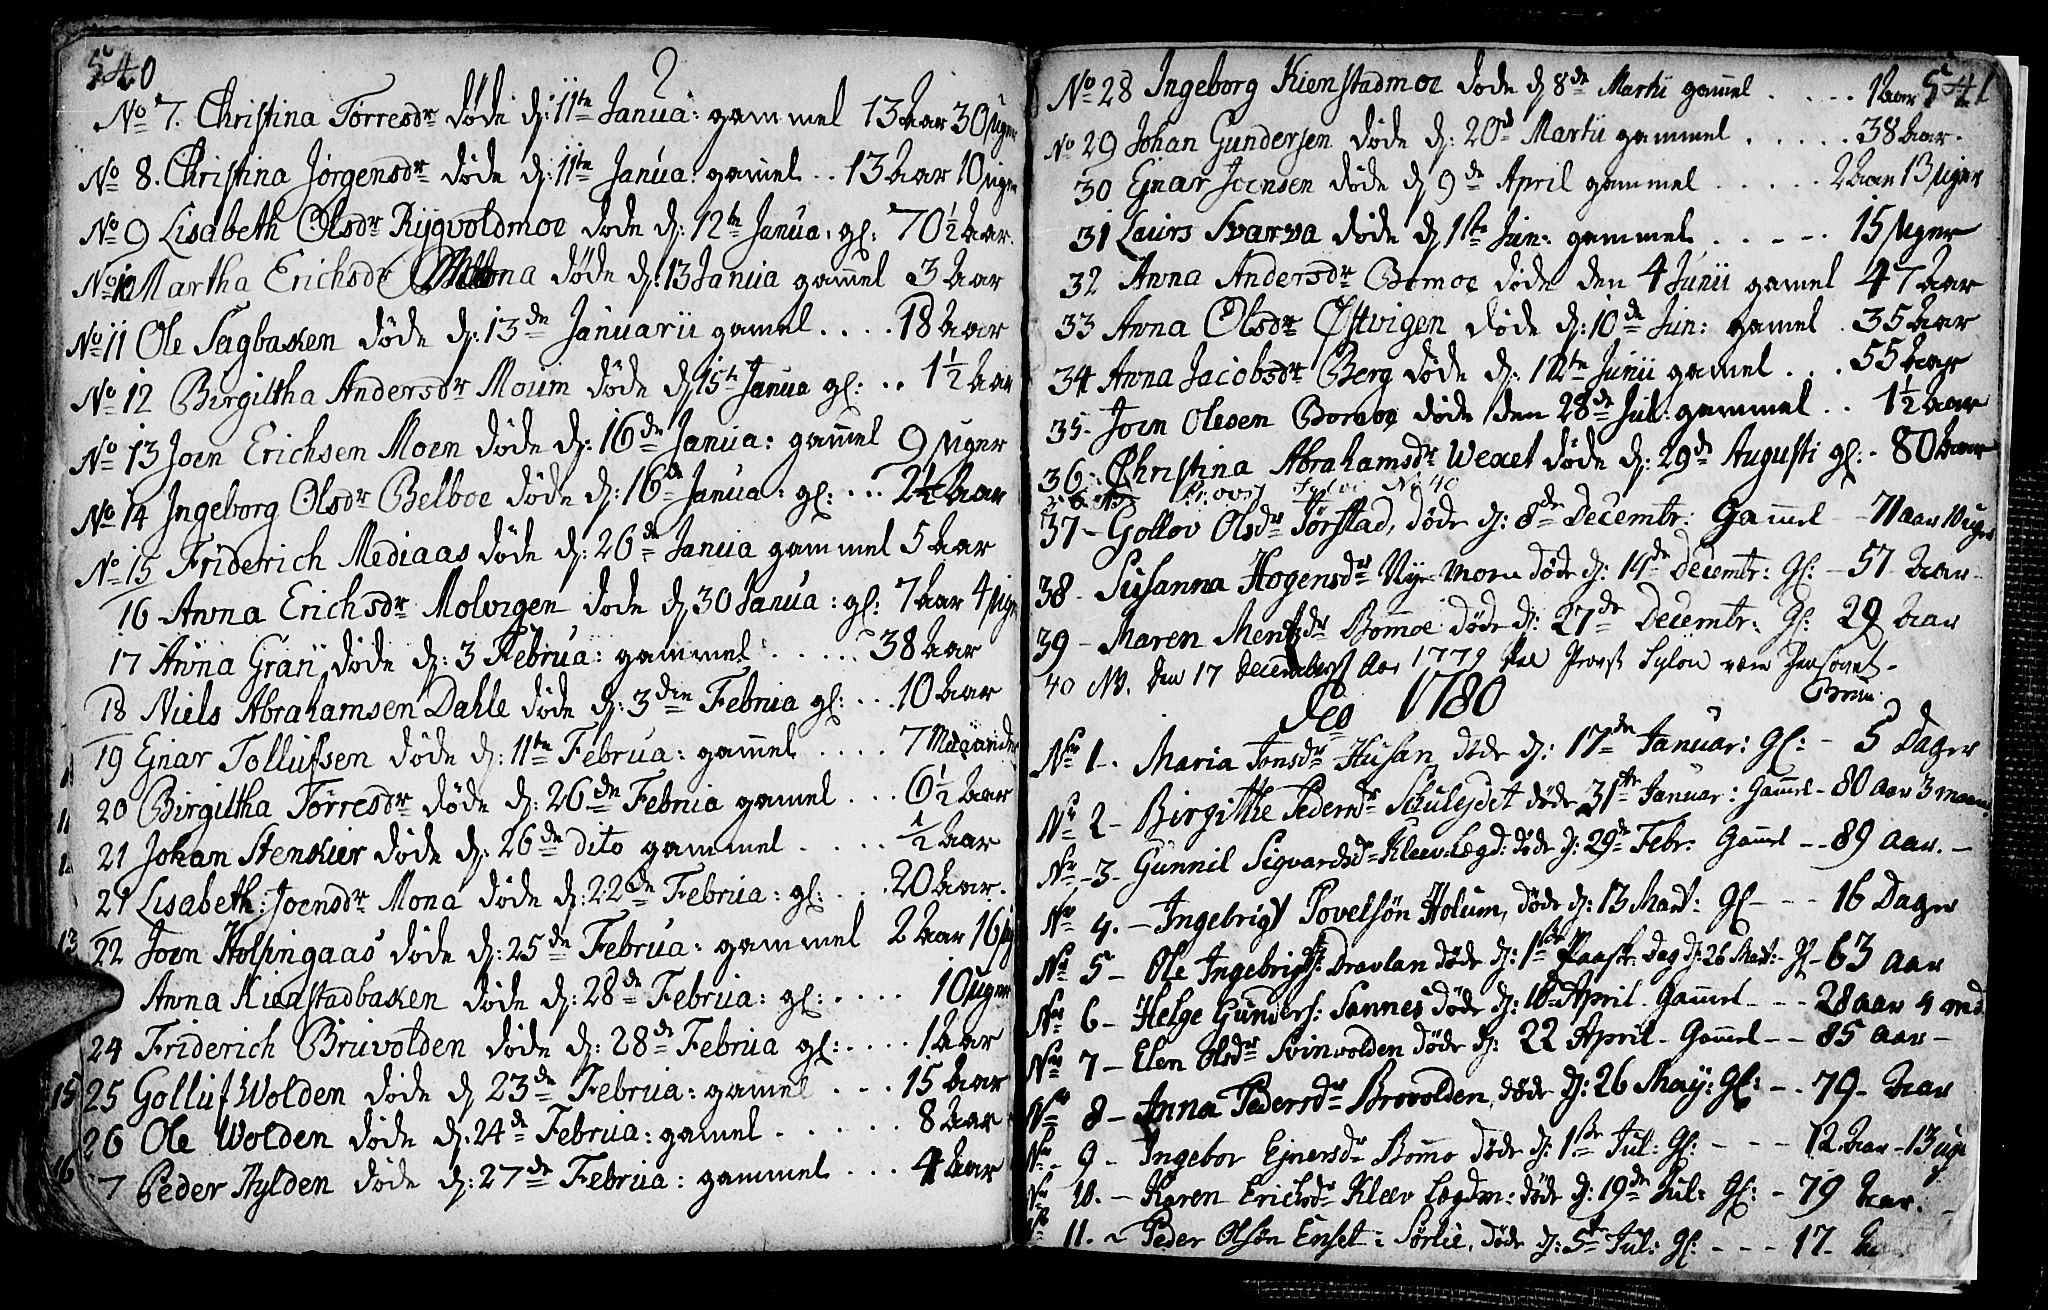 540
No 7. Christina Torresdr døde d: 11te Janua: gammel 13 Aar 30 Uger
No 8. Christina Jørgensdr døde d: 11te Janua: gamel .. 13 Aar 10 uger
No 9 Lisabeth Olsdr Rygvoldmoe døde d: 12te Janua: gl: 70 1/2 Aar.
No 10 Martha Erichsdr Mona døde d: 13 Janua gamel 3 Aar
No 11 Ole Sagbaken døde d: 13de Januarii gamel .... 18 Aar
No 12 Birgiltha Andersdr Moum døde d 15t Janua gl: .. 1 1/2 Aar
No 13 Joen Erichsen Moen døde d: 16de Janua: gamel 9 Uger
No 14 Ingeborg Olsdr Belboe døde d: 16de Janua: gl: ... 2 1/2 Aar
No 15 Friderich Mediaas døde d: 26de Janua gammel 5 Aar
16 Anna Erichsdr Molvigen døde d 30 Janua: gl: 7 Aar 4 Uger
17 Anna Gran døde d: 3 Februa: gammel ..... 38 Aar
18 Niels Abrahamsen Dahle døde d: 3die Februa gl: ... 10 Aar
19 Ejnar Tollufsen døde d: 11te Februa: gammel .... 7 Maaneder
20 Birgiltha Torresdr døde d: 26de Februa gamel ... 6 1/2 Aar
21 Johan Stenkier døde d: 26de dito gammel ..... 1/2 Aar
21 Lisabeth: Joensdr Mona døde d: 22de Februa: gl: ... 20 Aar.
22 Joen Holsingaas døde d: 25de Februa: gammel 2 Aar 16
Anna Kienstadbaken døde d: 28de Februa: gl: .... 10 uger
24 Friderich Bruvolden døde d: 28de Februa gl: .... 1 Aar
25 Golluf Wolden døde d 23de Februa: gamel ... 15 Aar
26 Ole Wolden døde d: 24de Februa: gamel ...... 8 Aar
7 Peder Hylden døde d: 27de Februa: gammel ... 4 Aar
541
No 28 Ingeborg Kienstadmoe døde d 8de Martii gamel .... 1 Aar
No 29 Johan Gundersen døde d: 20d Martii gammel ...... 38 Aar.
30 Ejnar Joensen døde d 9de April gammel ..... 2 Aar 13 Uger
31 Laurs Svarva døde d 1ste Jun: gammel ..... 15 Uger
32 Anna Andersdr Bomoe døde den 4 Junii gamel 47 Aar
33 Anna Olsdr Østvigen døde d: 10de Jun: gamel . 35 Aar
34 Anna Jacobsdr Berg døde d: 12te Junii gamel ... 55 Aar
35. Joen Olesen Bomoe døde den 28de Jul: gammel .. 1 1/2 Aar
36. Christina Abrahamsdr Wexet døde d: 29de Augusti gl: - 80 Aar
No 40
37 - Gollov Olsdr Tørstad, døde d: 8de Decembr: Gamel - 71 aar 10 uger
38 - Susanna Hogensdr Nye-Moen døde d: 14de Decembr: gl: - 57 Aar -
39 - Maren Mentzdr Bomoe døde d: 27de Decembr: gl: 29 Aar
40 NB. den 17 December Aar 1779
Ao 1780
No 1 - Maria Jonsdr Husan døde d: 17de Januar: gl: - 5 Dager
No 2 - Birgitthe Pedersdr Skuleydet døde 31te Januar: Gamel - 80 Aar 3 maan
No 3 - Gunnil Sigvardsdr Kleev Lægd: døde d: 29de Febr. Gamel - - 89 Aar. -
No 4. - Ingebrigt Povelsøn Holum, døde d: 13 Mart: gl - - - 16 Dager
No 5 - Ole Ingebrigts: Dravlan døde d: 1ste Paaske Dag d: 26 Mart: - gl - 63 Aar
No 6 - Helge Gunders: Sannes døde d: 10de April - Gamel - - - 28 aar 4 md.
No 7 - Elen Olsdr Svinvolden døde d: 22 April - Gamel - - 85 Aar -
No 8 - Anna Pedersdr Brovolden, døde d: 26 May: gl: - - 79 - Aar
No 9 - Ingebor Ejnersdr Bomo døde d: 1ste Jul: gl: - - - 12 Aar - 13 uger
No 10. - Karen Erichsdr Kleev Lægdm: døde d: 19de Jul: gl: - 79 Aar.
11. - Peder Olsøn Enset i Sørlie, døde d: 5te Jul: gl: - - - 17 -